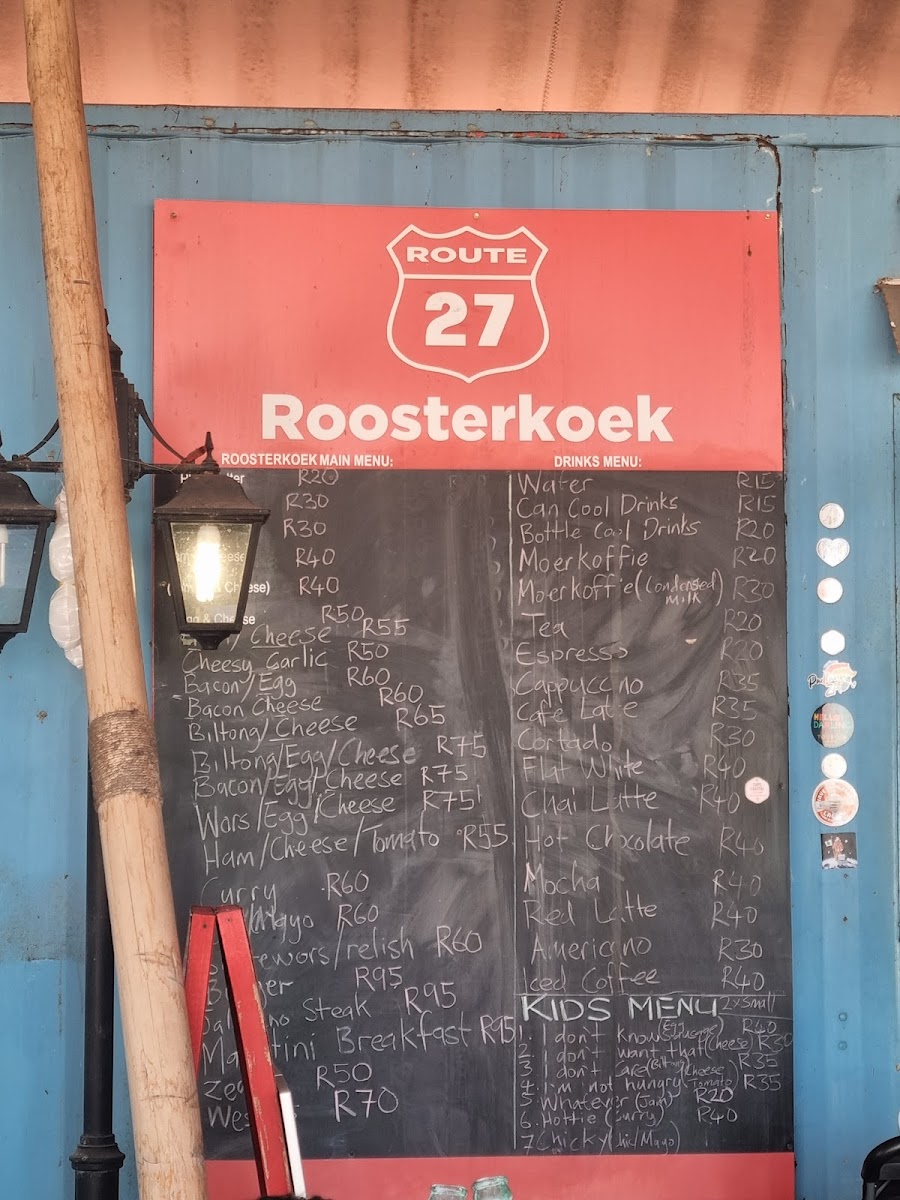 ROUTE
27
Roosterkoek
ROOSTERKOEK MAIN MENU:
R20
R30
R30
R40
R40
& Cheese R50
Cheese R55
Cheesy Garlic R50
Bacon/Egg R60
Bacon Cheese R60
Biltong/Cheese R65
Biltong/Egg/Cheese R75
Bacon/Egg/Cheese R75
Wors/Egg/Cheese R75
Ham/Cheese/Tomato R55
Curry R60
Mayo R60
wors/relish R60
R95
Steak R95
Breakfast R95
R50
R70
DRINKS MENU:
Water R15
Can Cool Drinks R15
Bottle Cool Drinks R20
Moerkoffie R20
Moerkoffie (Condensed milk) R30
Tea R20
Espresso R20
Cappuccino R35
Cafe Latte R35
Cortado R30
Flat White R40
Chai Latte R40
Hot Chocolate R40
Mocha R40
Red Latte R40
Americano R30
Iced Coffee R40
KIDS MENU 2 x Small
1. I don't know R40
2. I don't want that (Cheese) R30
3 I don't care (Biltong/Cheese) R35
4. I'm not hungry (Tomato) R35
5. Whatever (Jam) R20
6. Hottie (Curry) R40
7 Chicky (Mayo)